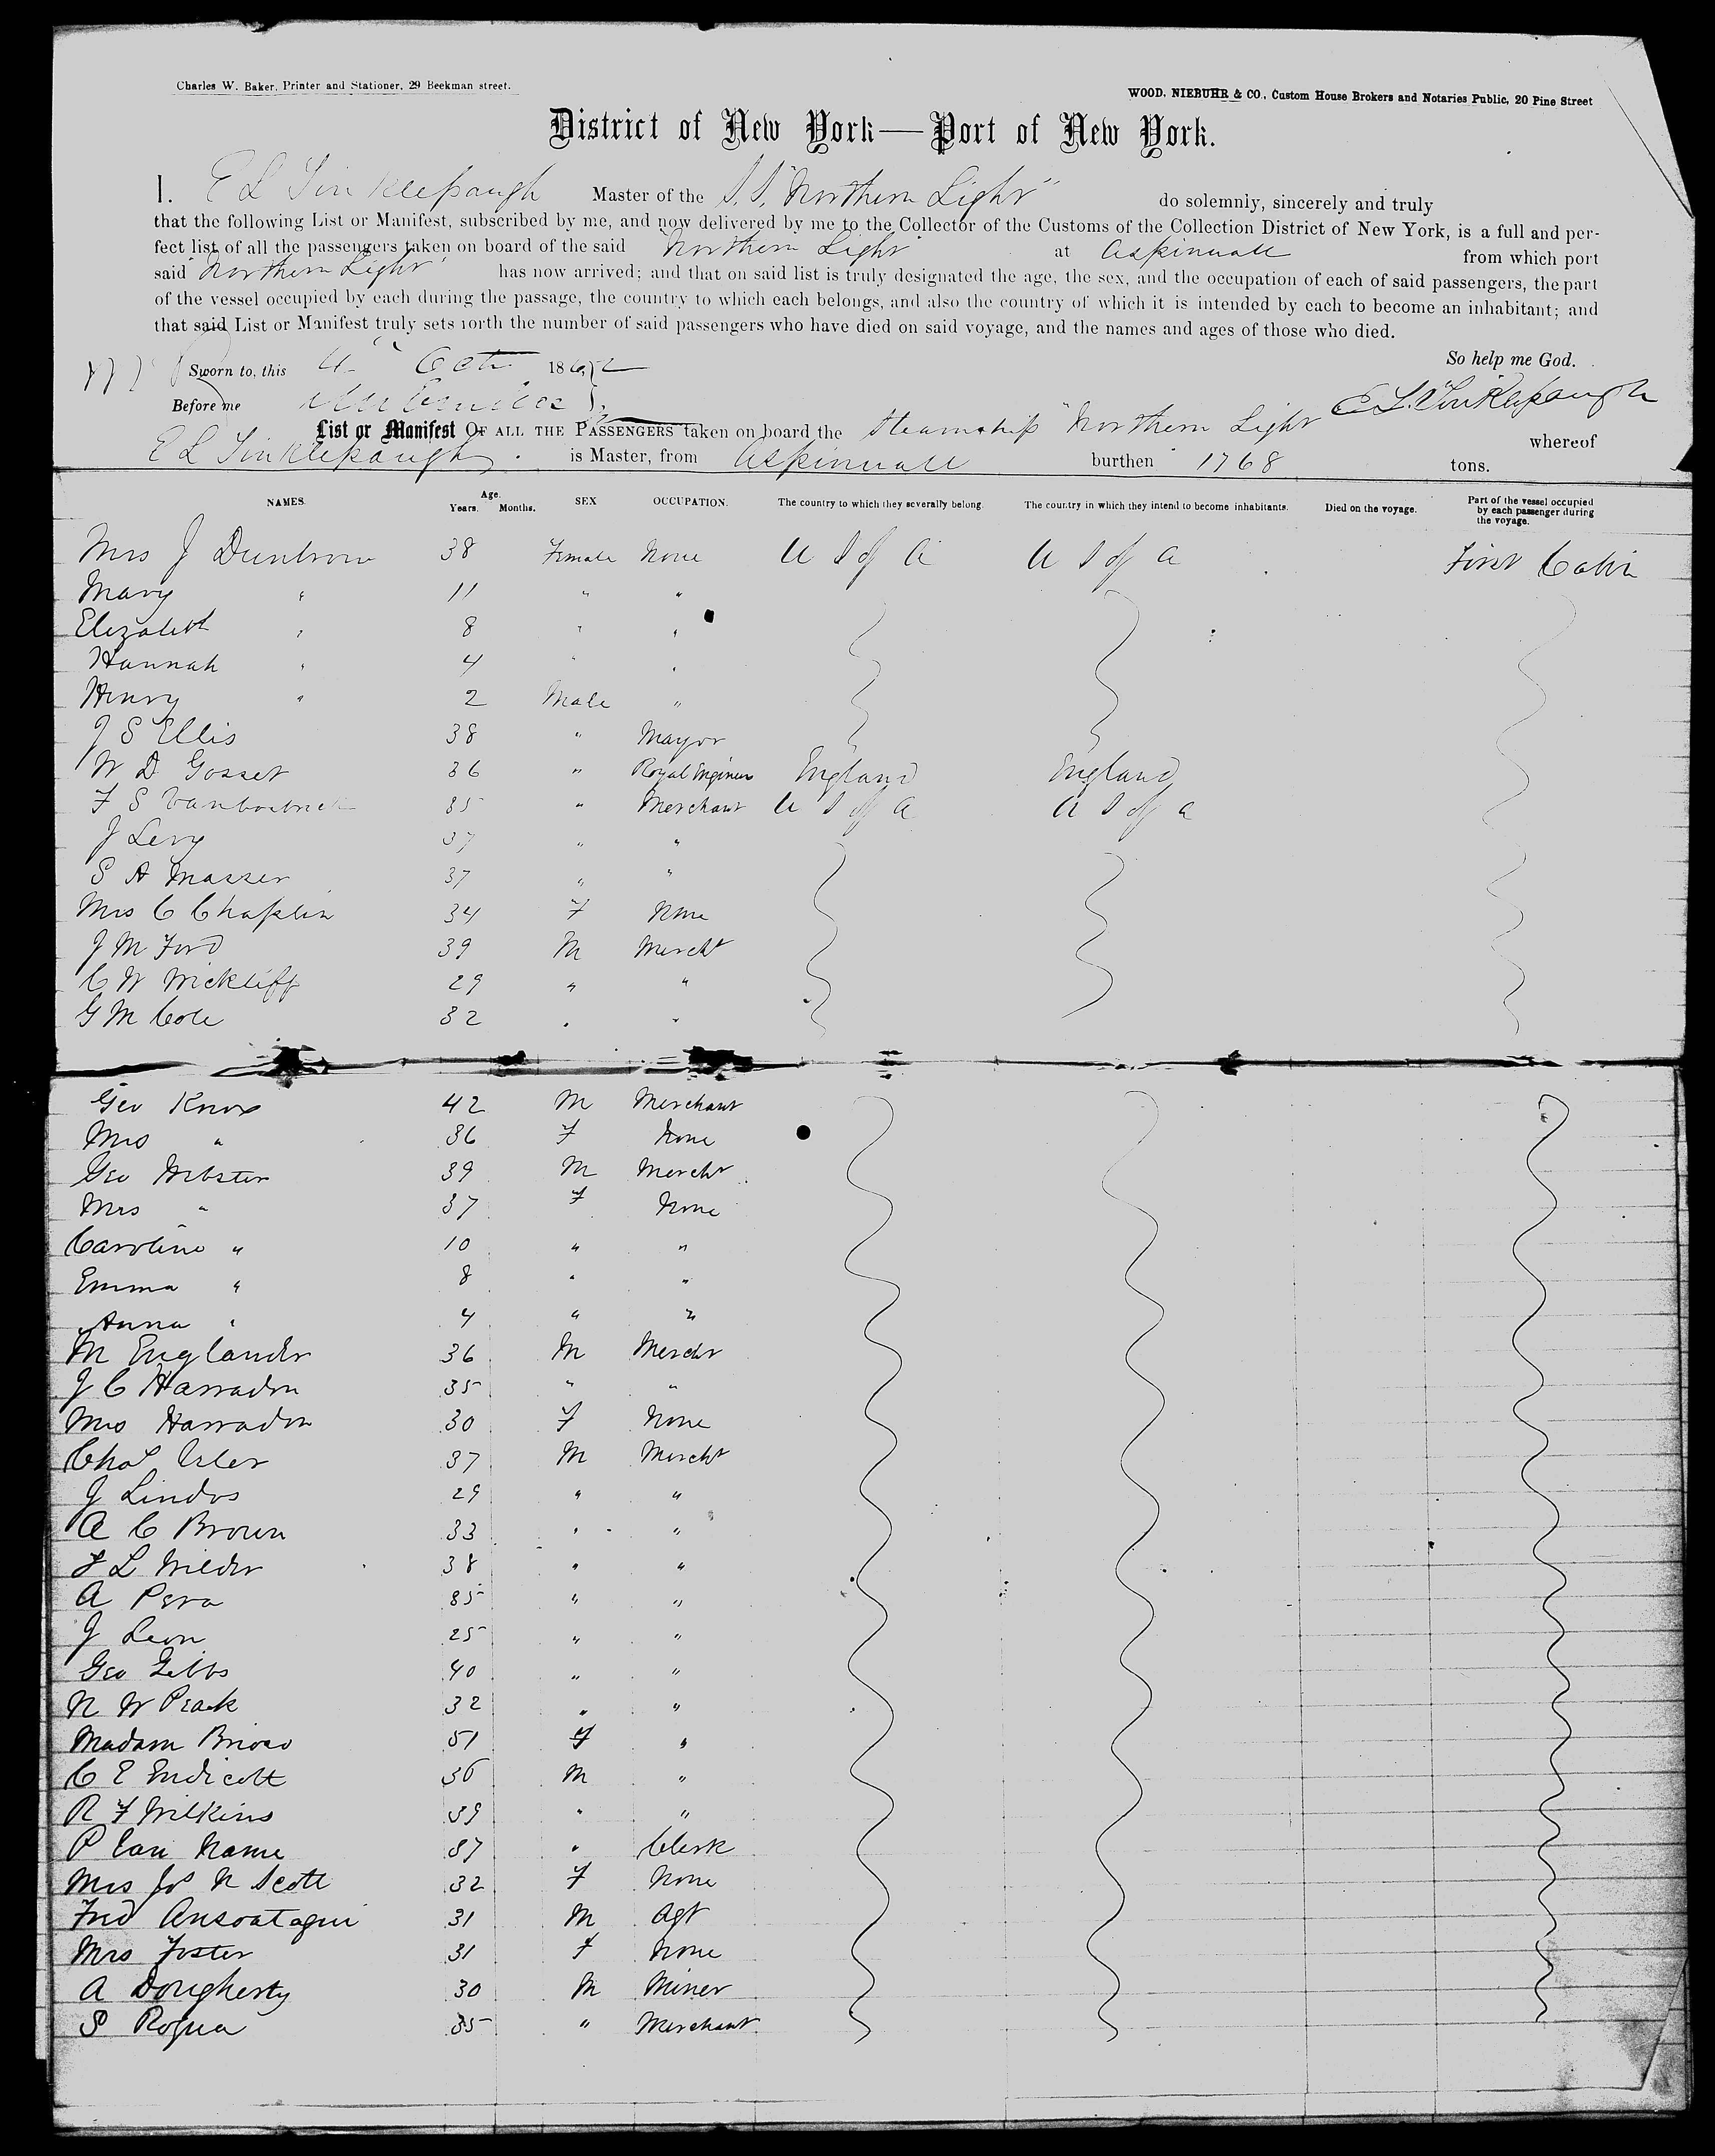 Charles W. Baker, Printer and Stationer, 29 Beekman street.
WOOD, NIEBUHR & CO., Custom House Brokers and Notaries Public, 20 Pine Street
District of New York—Port of New York.
I, E L Tinklepaugh Master of the S.S. "Northern Light" do solemnly, sincerely and truly
that the following List or Manifest, subscribed by me, and now delivered by me to the Collector of the Customs of the Collection District of New York, is a full and per-
fect list of all the passengers taken on board of the said Northern Light at Aspinwall from which port
said "Northern Light" has now arrived; and that on said list is truly designated the age, the sex, and the occupation of each of said passengers, the part
of the vessel occupied by each during the passage, the country to which each belongs, and also the country of which it is intended by each to become an inhabitant; and
that said List or Manifest truly sets forth the number of said passengers who have died on said voyage, and the names and ages of those who died.
So help me God.
Sworn to, this Oct 1862
Before me
E L Tinklepaugh
List or Manifest OF ALL THE PASSENGERS taken on board the Steamship "Northern Light whereof
E L Tinklepaugh is Master, from Aspinwall burthen 1768 tons.
NAMES. Age. Years. Months. SEX OCCUPATION. The country to which they severally belong. The country in which they intend to become inhabitants. Died on the voyage. Part of the vessel occupied by each passenger during the voyage.
Mrs J Duntrow 38 Female None U S of A U S of A First Cabin
Mary " 11 " "
Elizabeth " 8 " "
Hannah " 4 " "
Henry " 2 Male "
J S Ellis 38 " Mayor
W D Gosset 36 " Royal Engineer England England
F S 35 " Merchant U S of A U S of A
J Levy 37 " "
S A Masser 37 " "
Mrs C Chaplin 34 F None
J M Ford 39 M Mercht
C W Wickliff 29 " "
G M Cole 32 " "
Geo Knox 42 M Merchant
Mrs " 36 F None
Geo Webster 39 M Mercht
Mrs " 37 F None
Caroline " 10 " "
Emma " 8 " "
Anna " 4 " "
M Englander 36 M Mercht
J C Harradon 35 " "
Mrs Harradon 30 F None
Chas Isler 37 M Mercht
J Lindos 29 " "
A C Brown 33 " "
F L Wilder 38 " "
A Pera 35 " "
J Leon 25 " "
Geo Gibbs 40 " "
N W Peack 32 " "
Madam 51 F "
C E Endicott 36 M "
R F Wilkins 39 " "
P Van Name 37 " Clerk
Mrs Jos N Scott 32 F None
Fred Ansoatagui 31 M Agt
Mrs Foster 31 F None
A Dougherty 30 M Miner
S Roqua 35 " Merchant